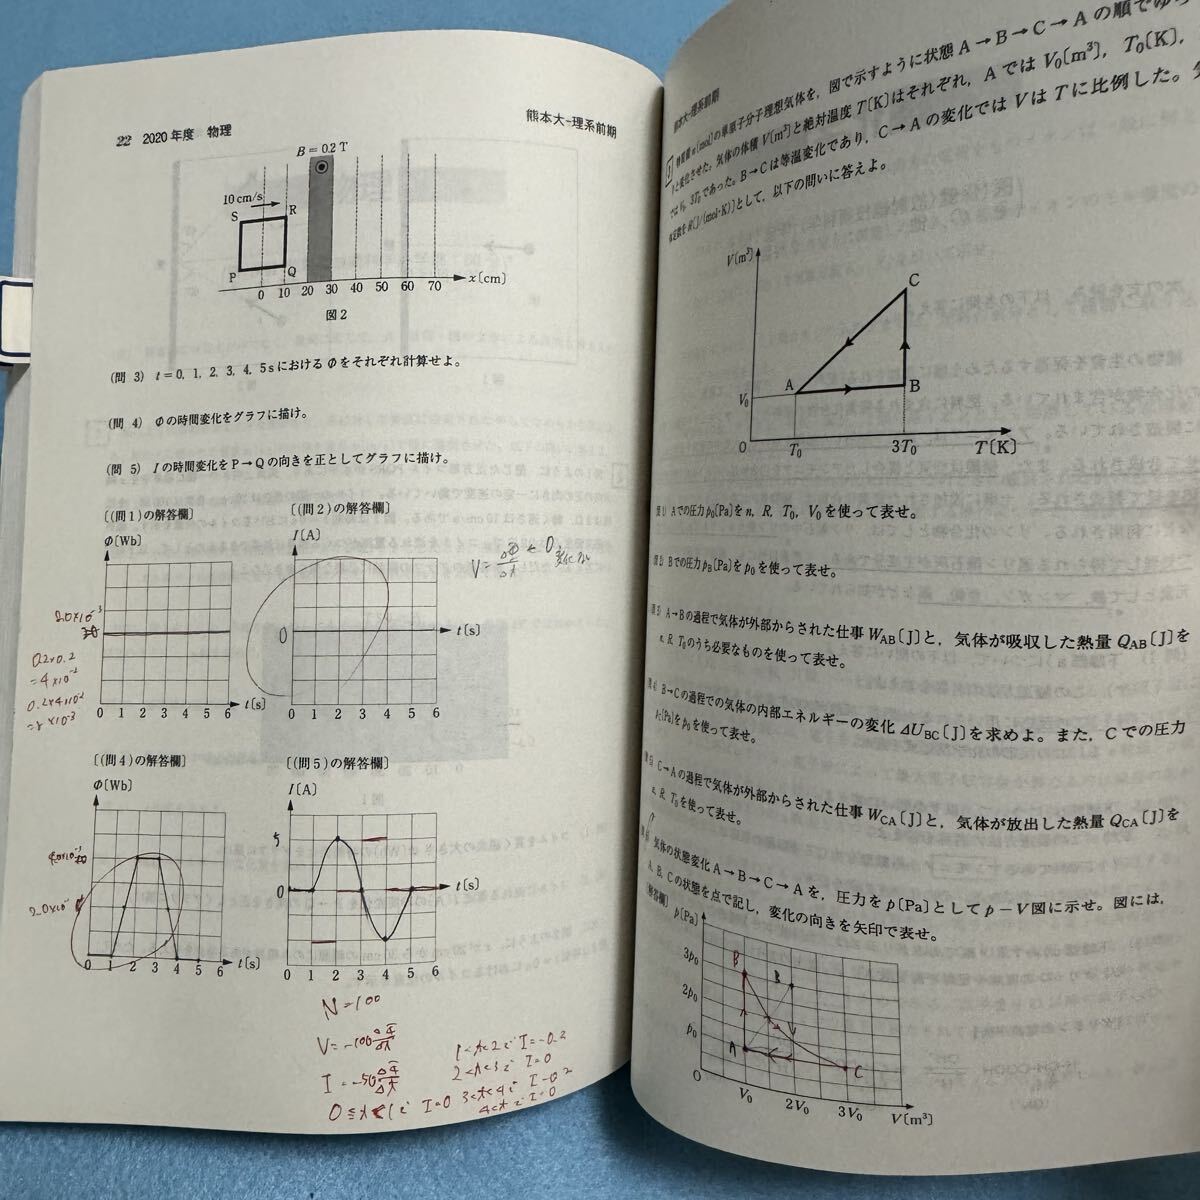 22 2020年度 物理
熊本大-理系前期
B=0.2 T
10 cm/s
S
R
P
Q
0 10 20 30 40 50 60 70
x〔cm〕
図2
(問 3) t=0, 1, 2, 3, 4, 5s における Φ をそれぞれ計算せよ。
(問 4) Φの時間変化をグラフに描け。
(問 5) Iの時間変化をP→Qの向きを正としてグラフに描け。
〔(問1)の解答欄〕
〔(問2)の解答欄〕
Φ〔Wb〕
I〔A〕
2.0×10⁻³
0.2×0.2
=4×10⁻²
0.2×4×10⁻²
=8×10⁻³
0 1 2 3 4 5 6 t〔s〕
0
t〔s〕
0 1 2 3 4 5 6
〔(問4)の解答欄〕
〔(問5)の解答欄〕
Φ〔Wb〕
I〔A〕
5
0
t〔s〕
0 1 2 3 4 5 6 t〔s〕
0 1 2 3 4 5 6
N=100
V=-100ΔΦ/Δt
I=-50ΔΦ/Δt
1<t<2で I=-0.2
2<t<3で I=0
0≦t<1で I=0 3<t<4で I=0.2
4<tで I=0
熊本大-理系前期
物質量n〔mol〕の単原子分子理想気体を，図で示すように状態A→B→C→Aの順でゆっ
と変化させた。気体の体積V〔m³〕と絶対温度T〔K〕はそれぞれ，AではV₀〔m³〕，T₀〔K〕，
ではV₀，3T₀であった。B→Cは等温変化であり，C→Aの変化ではVはTに比例した。気
体定数をR〔J/(mol·K)〕として，以下の問いに答えよ。
V〔m³〕
C
A
B
V₀
0
T₀
3T₀
T〔K〕
Aでの圧力p₀〔Pa〕をn，R，T₀，V₀を使って表せ。
Bでの圧力p_B〔Pa〕をp₀を使って表せ。
A→Bの過程で気体が外部からされた仕事W_AB〔J〕と，気体が吸収した熱量Q_AB〔J〕を
n，R，T₀のうち必要なものを使って表せ。
B→Cの過程での気体の内部エネルギーの変化ΔU_BC〔J〕を求めよ。また，Cでの圧力
p_C〔Pa〕をp₀を使って表せ。
C→Aの過程で気体が外部からされた仕事W_CA〔J〕と，気体が放出した熱量Q_CA〔J〕を
n，R，T₀を使って表せ。
気体の状態変化A→B→C→Aを，圧力をp〔Pa〕としてp－V図に示せ。図には，
A，B，Cの状態を点で記し，変化の向きを矢印で表せ。
〔解答欄〕
p〔Pa〕
3p₀
B
B
2p₀
p₀
A
C
0
V₀
2V₀
3V₀
V〔m³〕